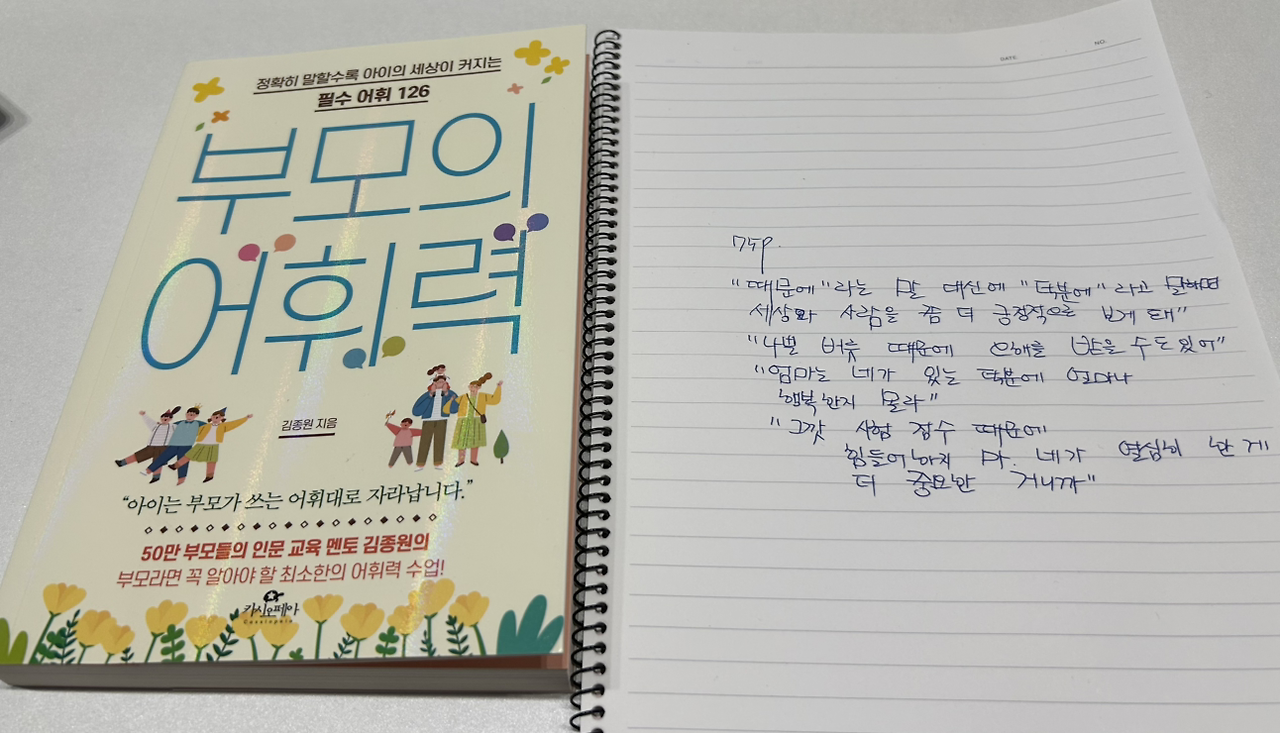 정확히 말할수록 아이의 세상이 커지는
필수 어휘 126
부모의
어휘력
김종원 지음
“아이는 부모가 쓰는 어휘대로 자라납니다.”
50만 부모들의 인문 교육 멘토 김종원의
부모라면 꼭 알아야 할 최소한의 어휘력 수업!
카시오페아
Cassiopeia
DATE
NO.
"때문에"라는 말 대신에 "덕분에"라고 말하면
세상과 사람을 좀 더 긍정적으로 보게 돼"
"나쁜 버릇 때문에 오해를 받을 수도 있어"
"엄마는 네가 있는 덕분에 얼마나
행복한지 몰라"
"그깟 시험 점수 때문에
힘들어하지 마. 네가 열심히 한 게
더 중요한 거니까"